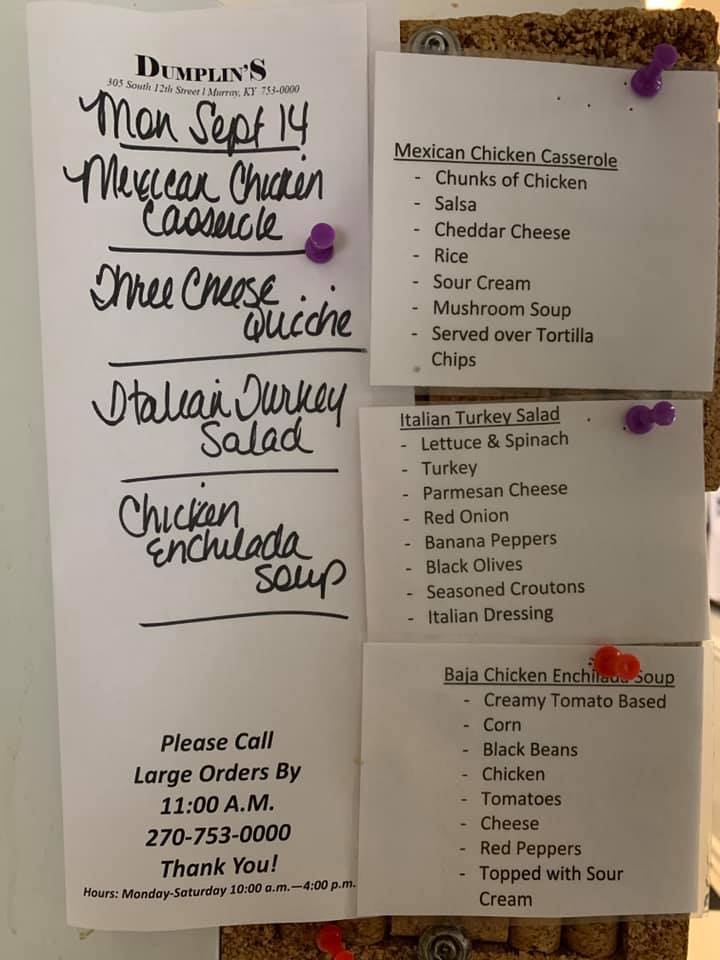 DUMPLIN'S
305 South 12th Street l Murray, KY 753-0000
Mon Sept 14
Mexican Chicken
Casserole
Three Cheese
Quiche
Italian Turkey
Salad
Chicken
Enchilada
Soup
Please Call
Large Orders By
11:00 A.M.
270-753-0000
Thank You!
Hours: Monday-Saturday 10:00 a.m.—4:00 p.m.
Mexican Chicken Casserole
- Chunks of Chicken
- Salsa
- Cheddar Cheese
- Rice
- Sour Cream
- Mushroom Soup
- Served over Tortilla
Chips
Italian Turkey Salad
- Lettuce & Spinach
- Turkey
- Parmesan Cheese
- Red Onion
- Banana Peppers
- Black Olives
- Seasoned Croutons
- Italian Dressing
Baja Chicken Enchilada Soup
- Creamy Tomato Based
- Corn
- Black Beans
- Chicken
- Tomatoes
- Cheese
- Red Peppers
- Topped with Sour
Cream